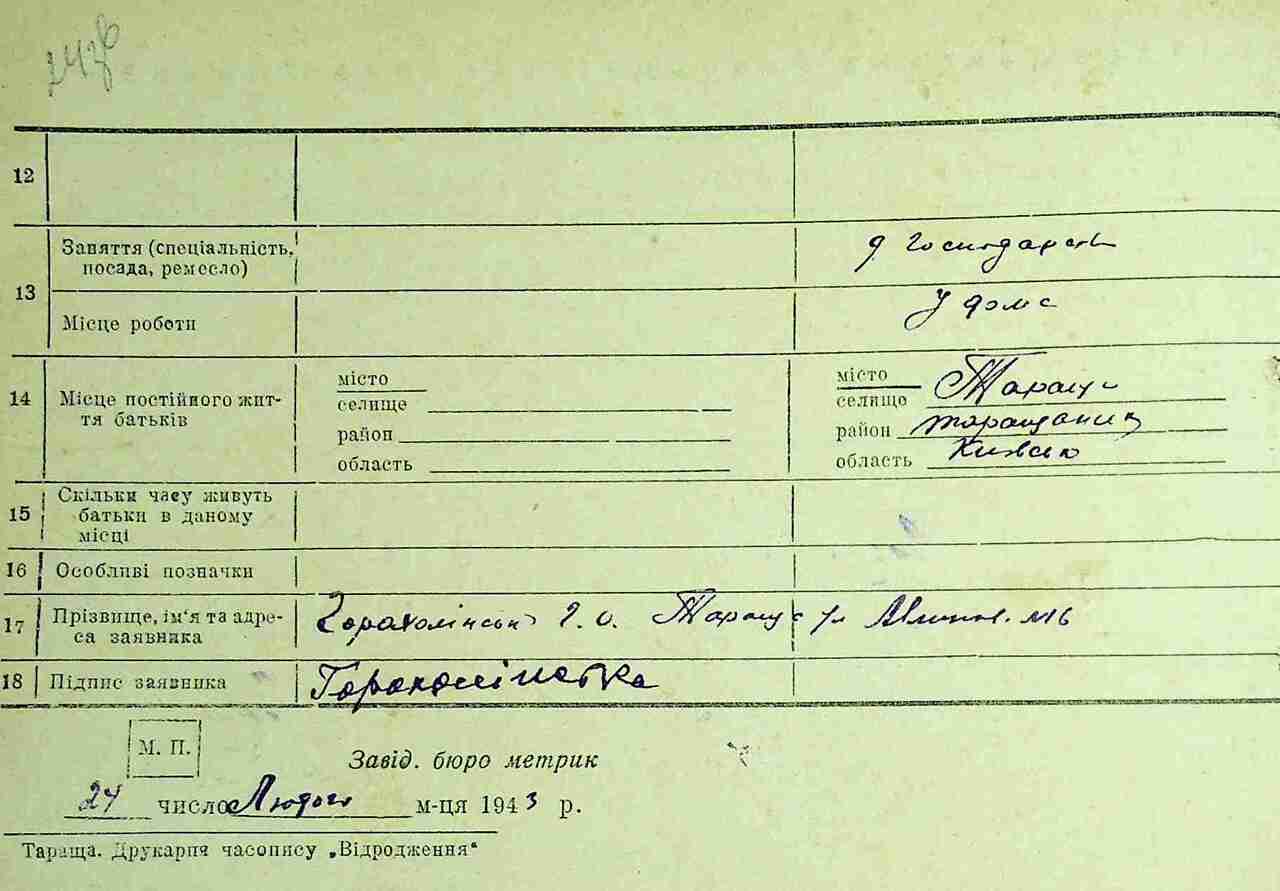 12
13
Заняття (спеціальність,
посада, ремесло)
д господарств
Місце роботи
у доме
14
Місце постійного жит-
тя батьків
місто
селище
район
область
місто
селище Тараща
район Таращанск
область Київсько
15
Скільки часу живуть
батьки в даному
місці
16 Особливі позначки
17
Прізвище, ім'я та адре-
са заявника
Г. О. Тараща ул №16
18 Підпис заявника
М. П.
Завід. бюро метрик
24 число Лютого м-ця 1943 р.
Тараща. Друкарня часопису „Відродження“